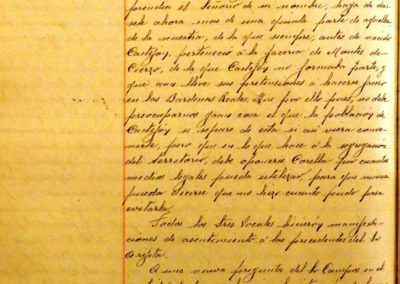 prendia el Señorio de su nombre, haya de dar-
sele ahora mas de una quinta parte de aquella
de la nuestra, de la que siempre, antes de nacido
Castejon, perteneció a la facería de Montes de
Cierzo, de la que Castejon no formaba parte, y
que aun lleve sus pretensiones á hacerse foral
en las Bardenas Reales. Que por ello pues, no debe
preocuparnos gran cosa el que la poblacion de
Castejon si separe de esta si así viera conve-
niente, pero que en lo que hace á la segregación
del territorio, debe oponerse Corella por cuantos
medios legales pueda utilizar, para que nunca
pueda decirse que no hizo cuanto pudo para
evitarla.
Todos los tres Vocales hicieron manifesta-
ciones de asentimiento á las precedentes del Sr.
Arejita.
A una nueva pregunta del Sr. Campos en el